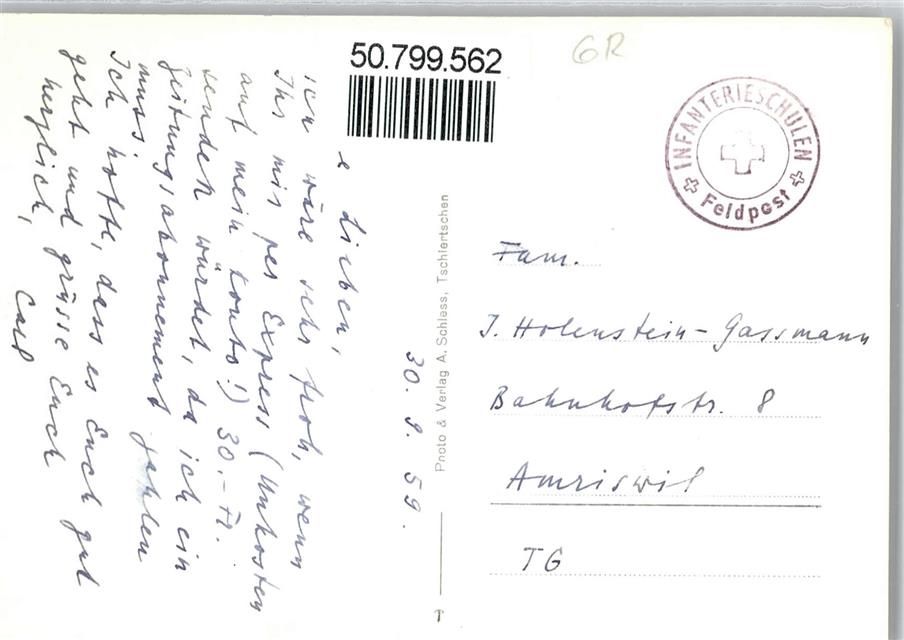 50.799.562
GR
INFANTERIESCHULEN
Feldpost
30. 9. 59.
Lieben,
ich wäre sehr froh, wenn
Ihr mir per Express (Unkosten
auf mein Konto!) 30.- Fr.
senden würdet, da ich ein
Zeitungsabonnement zahlen
muss.
Ich hoffe, dass es Euch gut
geht und grüsse Euch
herzlich,
Photo & Verlag A. Schless, Tschiertschen
Fam.
J. Holenstein-Gassmann
Bahnhofstr. 8
Amriswil
TG